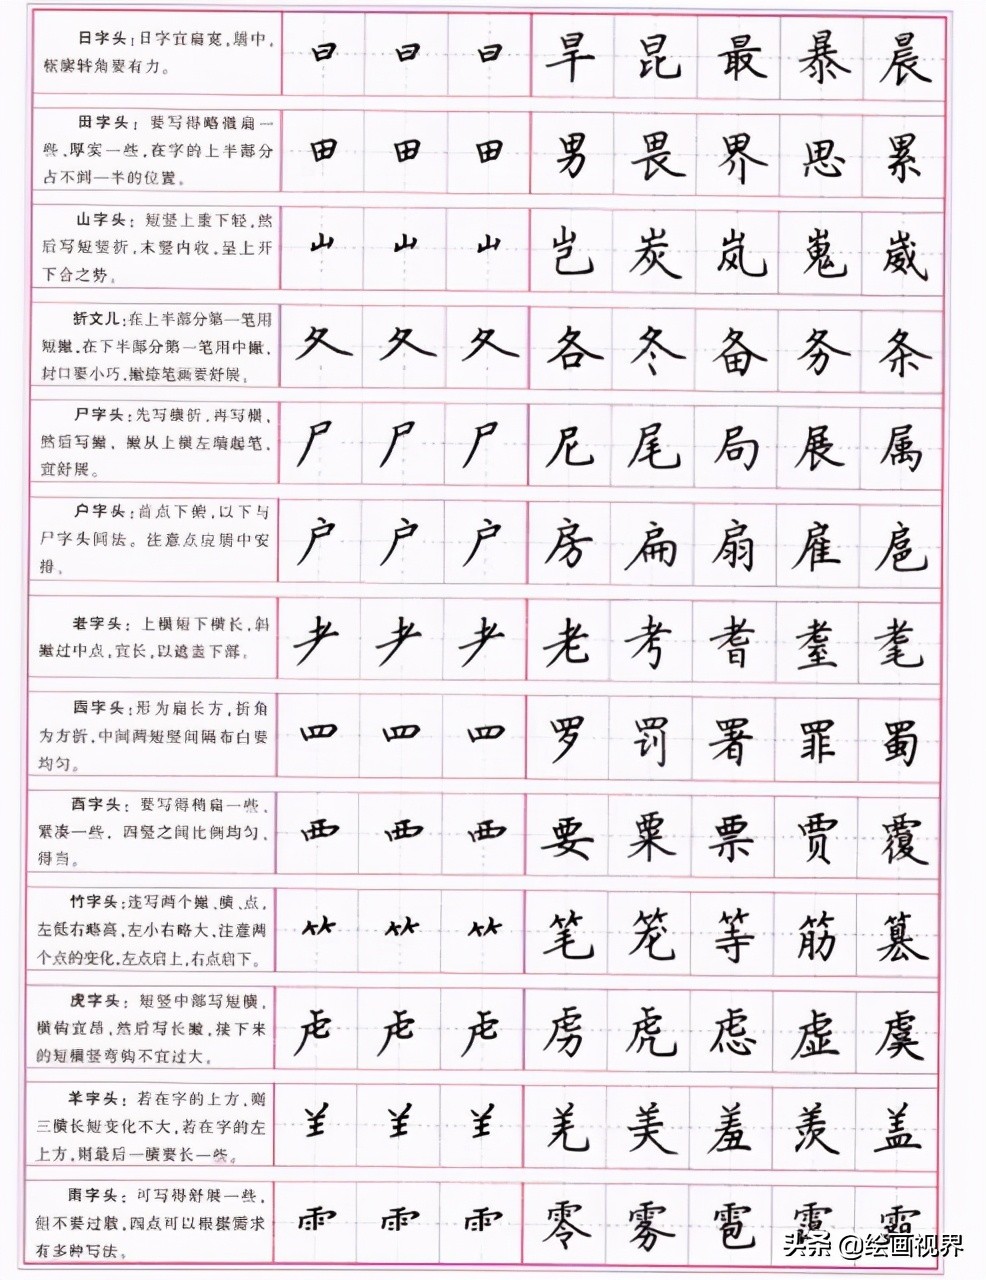 日字头：日字宜扁宽，居中，
横竖转角要有力。
日 日 日 旱 昆 最 暴 晨
田字头：要写得略微扁一
些、厚实一些，在字的上半部分
占不到一半的位置。
田 田 田 男 畏 界 思 累
山字头：短竖上重下轻，然
后写短竖折，末竖内收，呈上开
下合之势。
山 山 山 岂 炭 岚 嵬 崴
折文儿：在上半部分第一笔用
短撇，在下半部分第一笔用中撇，
封口要小巧，撇捺笔画要舒展。
夂 夂 夂 各 冬 备 务 条
尸字头：先写横折，再写横，
然后写撇，撇从上横左端起笔，
宜舒展。
尸 尸 尸 尼 尾 局 展 属
户字头：首点下俯，以下与
尸字头同法。注意点应居中安
排。
户 户 户 房 扁 扇 雇 扈
老字头：上横短下横长，斜
撇过中点，宜长，以遮盖下部。
耂 耂 耂 老 考 耆 耋 耄
四字头：形为扁长方，折角
为方折，中间两短竖间隔布白要
均匀。
罒 罒 罒 罗 罚 署 罪 蜀
西字头：要写得稍扁一些，
紧凑一些，四竖之间比例均匀，
得当。
覀 覀 覀 要 粟 票 贾 覆
竹字头：连写两个撇、横、点，
左低右略高，左小右略大，注意两
个点的变化，左点启上，右点启下。
⺮ ⺮ ⺮ 笔 笼 等 筋 篡
虎字头：短竖中部写短横，
横钩宜昂，然后写长撇，接下来
的短横竖弯钩不宜过大。
虍 虍 虍 虏 虎 虑 虚 虞
羊字头：若在字的上方，则
三横长短变化不大，若在字的左
上方，则最后一横要长一些。
𦍌 𦍌 𦍌 羌 美 羞 羡 盖
雨字头：可写得舒展一些，
但不要过散，四点可以根据需求
有多种写法。
⻗ ⻗ ⻗ 零 雾 雹 霜
头条 @绘画视界